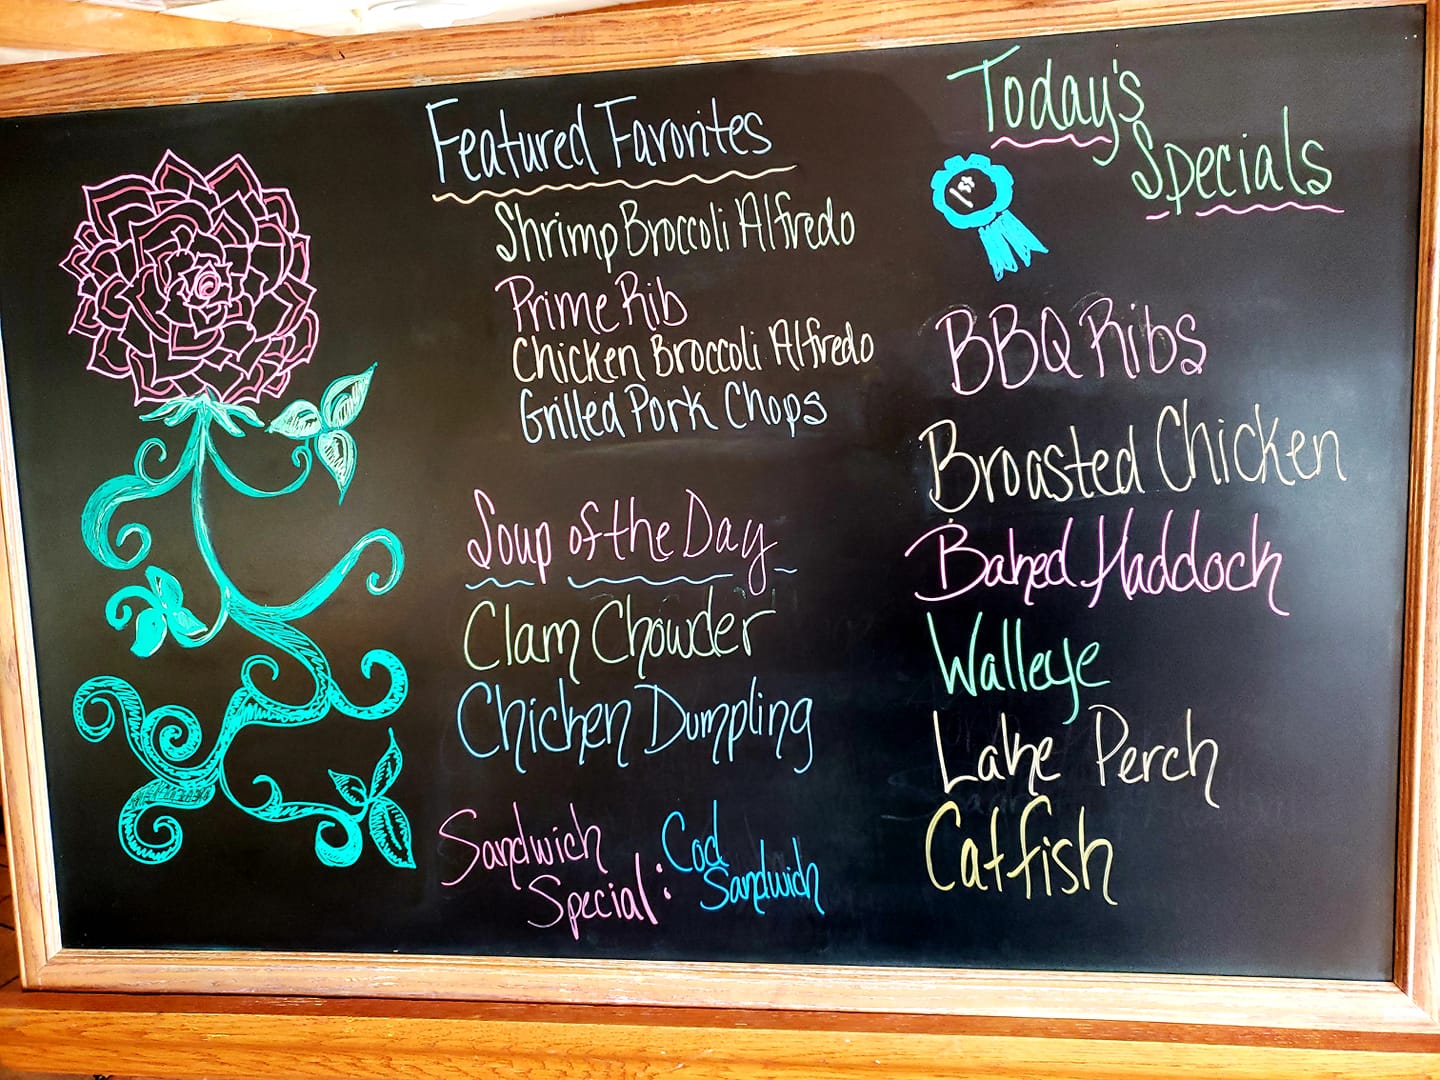 Featured Favorites
Shrimp Broccoli Alfredo
Prime Rib
Chicken Broccoli Alfredo
Grilled Pork Chops
Soup of the Day
Clam Chowder
Chicken Dumpling
Sandwich
Special:
Cod
Sandwich
Today's
Specials
1st
BBQ Ribs
Broasted Chicken
Baked Haddock
Walleye
Lake Perch
Catfish